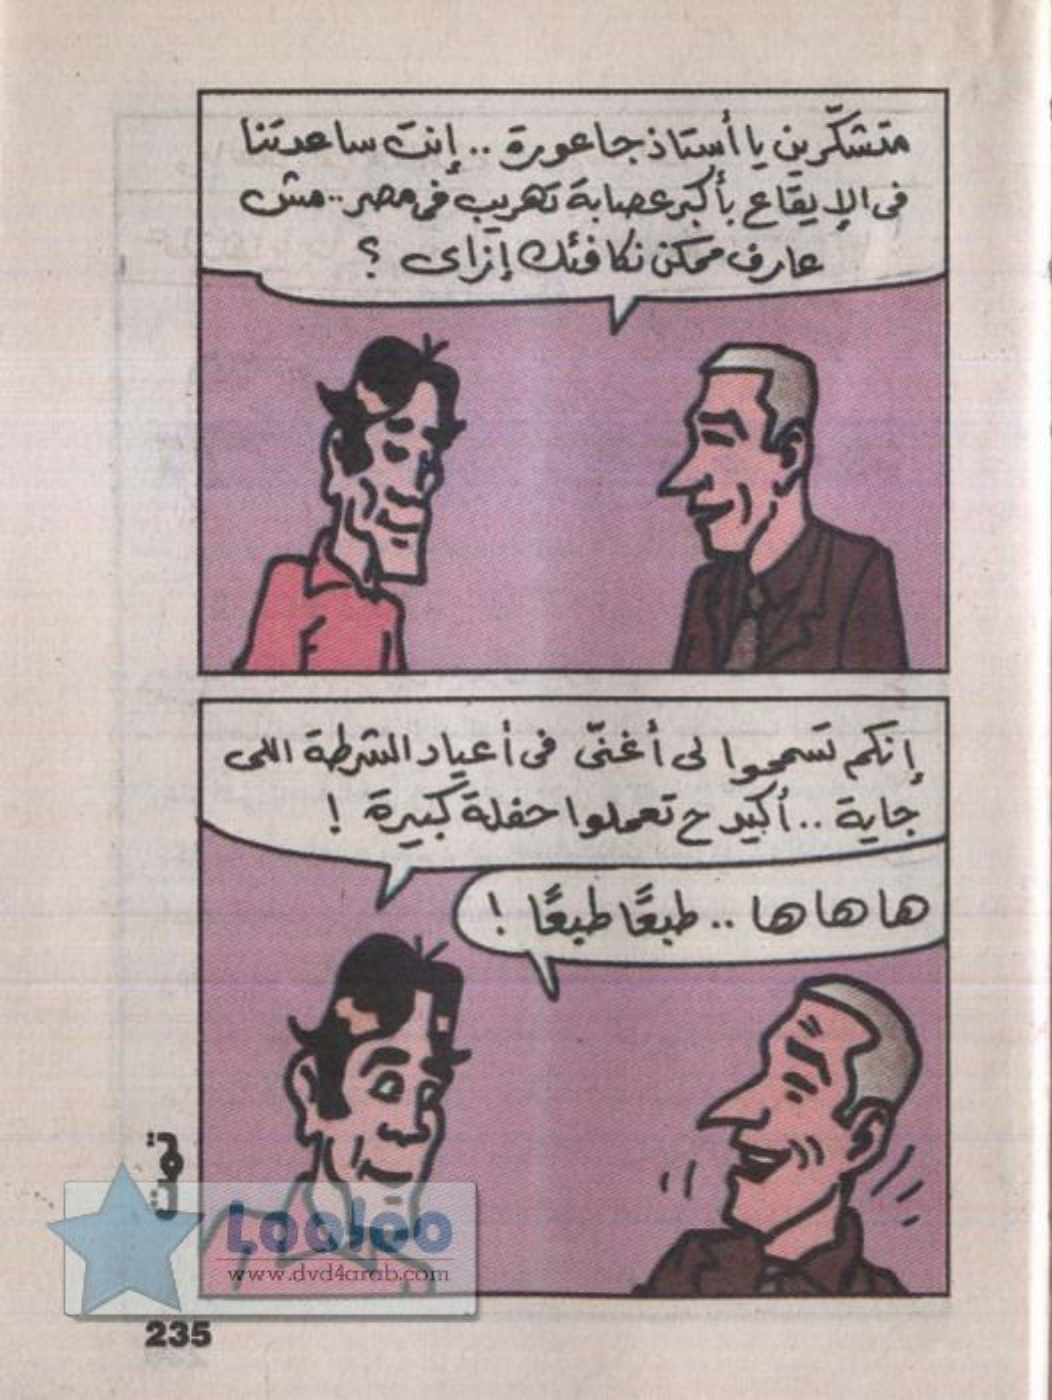 متشكّرين يا أستاذ جاعورة .. إنت ساعدتنا
فى الإيقاع بأكبر عصابة تهريب فى مصر .. مش
عارف ممكن نكافئك إزاى ؟
إنكم تسمحوا لى أغنّى فى أعياد الشرطة اللى
جاية .. أكيد ح تعملوا حفلة كبيرة !
ها ها ها .. طبعًا طبعًا !
تمت
Looloo
www.dvd4arab.com
235